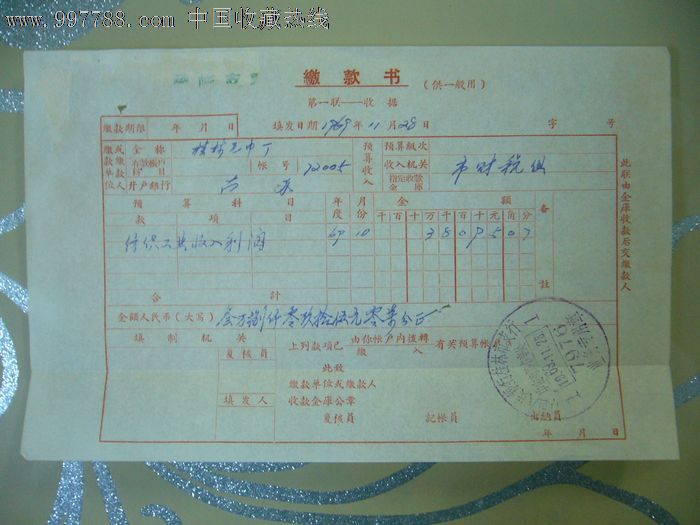 www.997788.com 中国收藏热线
缴款书
(供一般用)
第一联——收据
缴款期限 年 月 日
填发日期 1969年11月28日
字 号
缴或缴款单位人
全称 毛巾厂
帐号 72005
开户银行
预算收入
预算级次
收入机关 市财税组
指定收款金库
预算科目
款 项 目
年度 月份
金额
千百十万千百十元角分
备註
纺织工业收入利润
69 10
3 8 0 9 5 0 7
合计
金额人民币(大写) 叁万捌仟零玖拾伍元零柒分正
填制机关
复核员
填发人
上列款项已由你帐户内拨转
缴入
有关预算帐户
此致
缴款单位或缴款人
收款金库公章
复核员 記帐员 出納员
年 月 日
此联由金库收款后交缴款人
1969.11.28